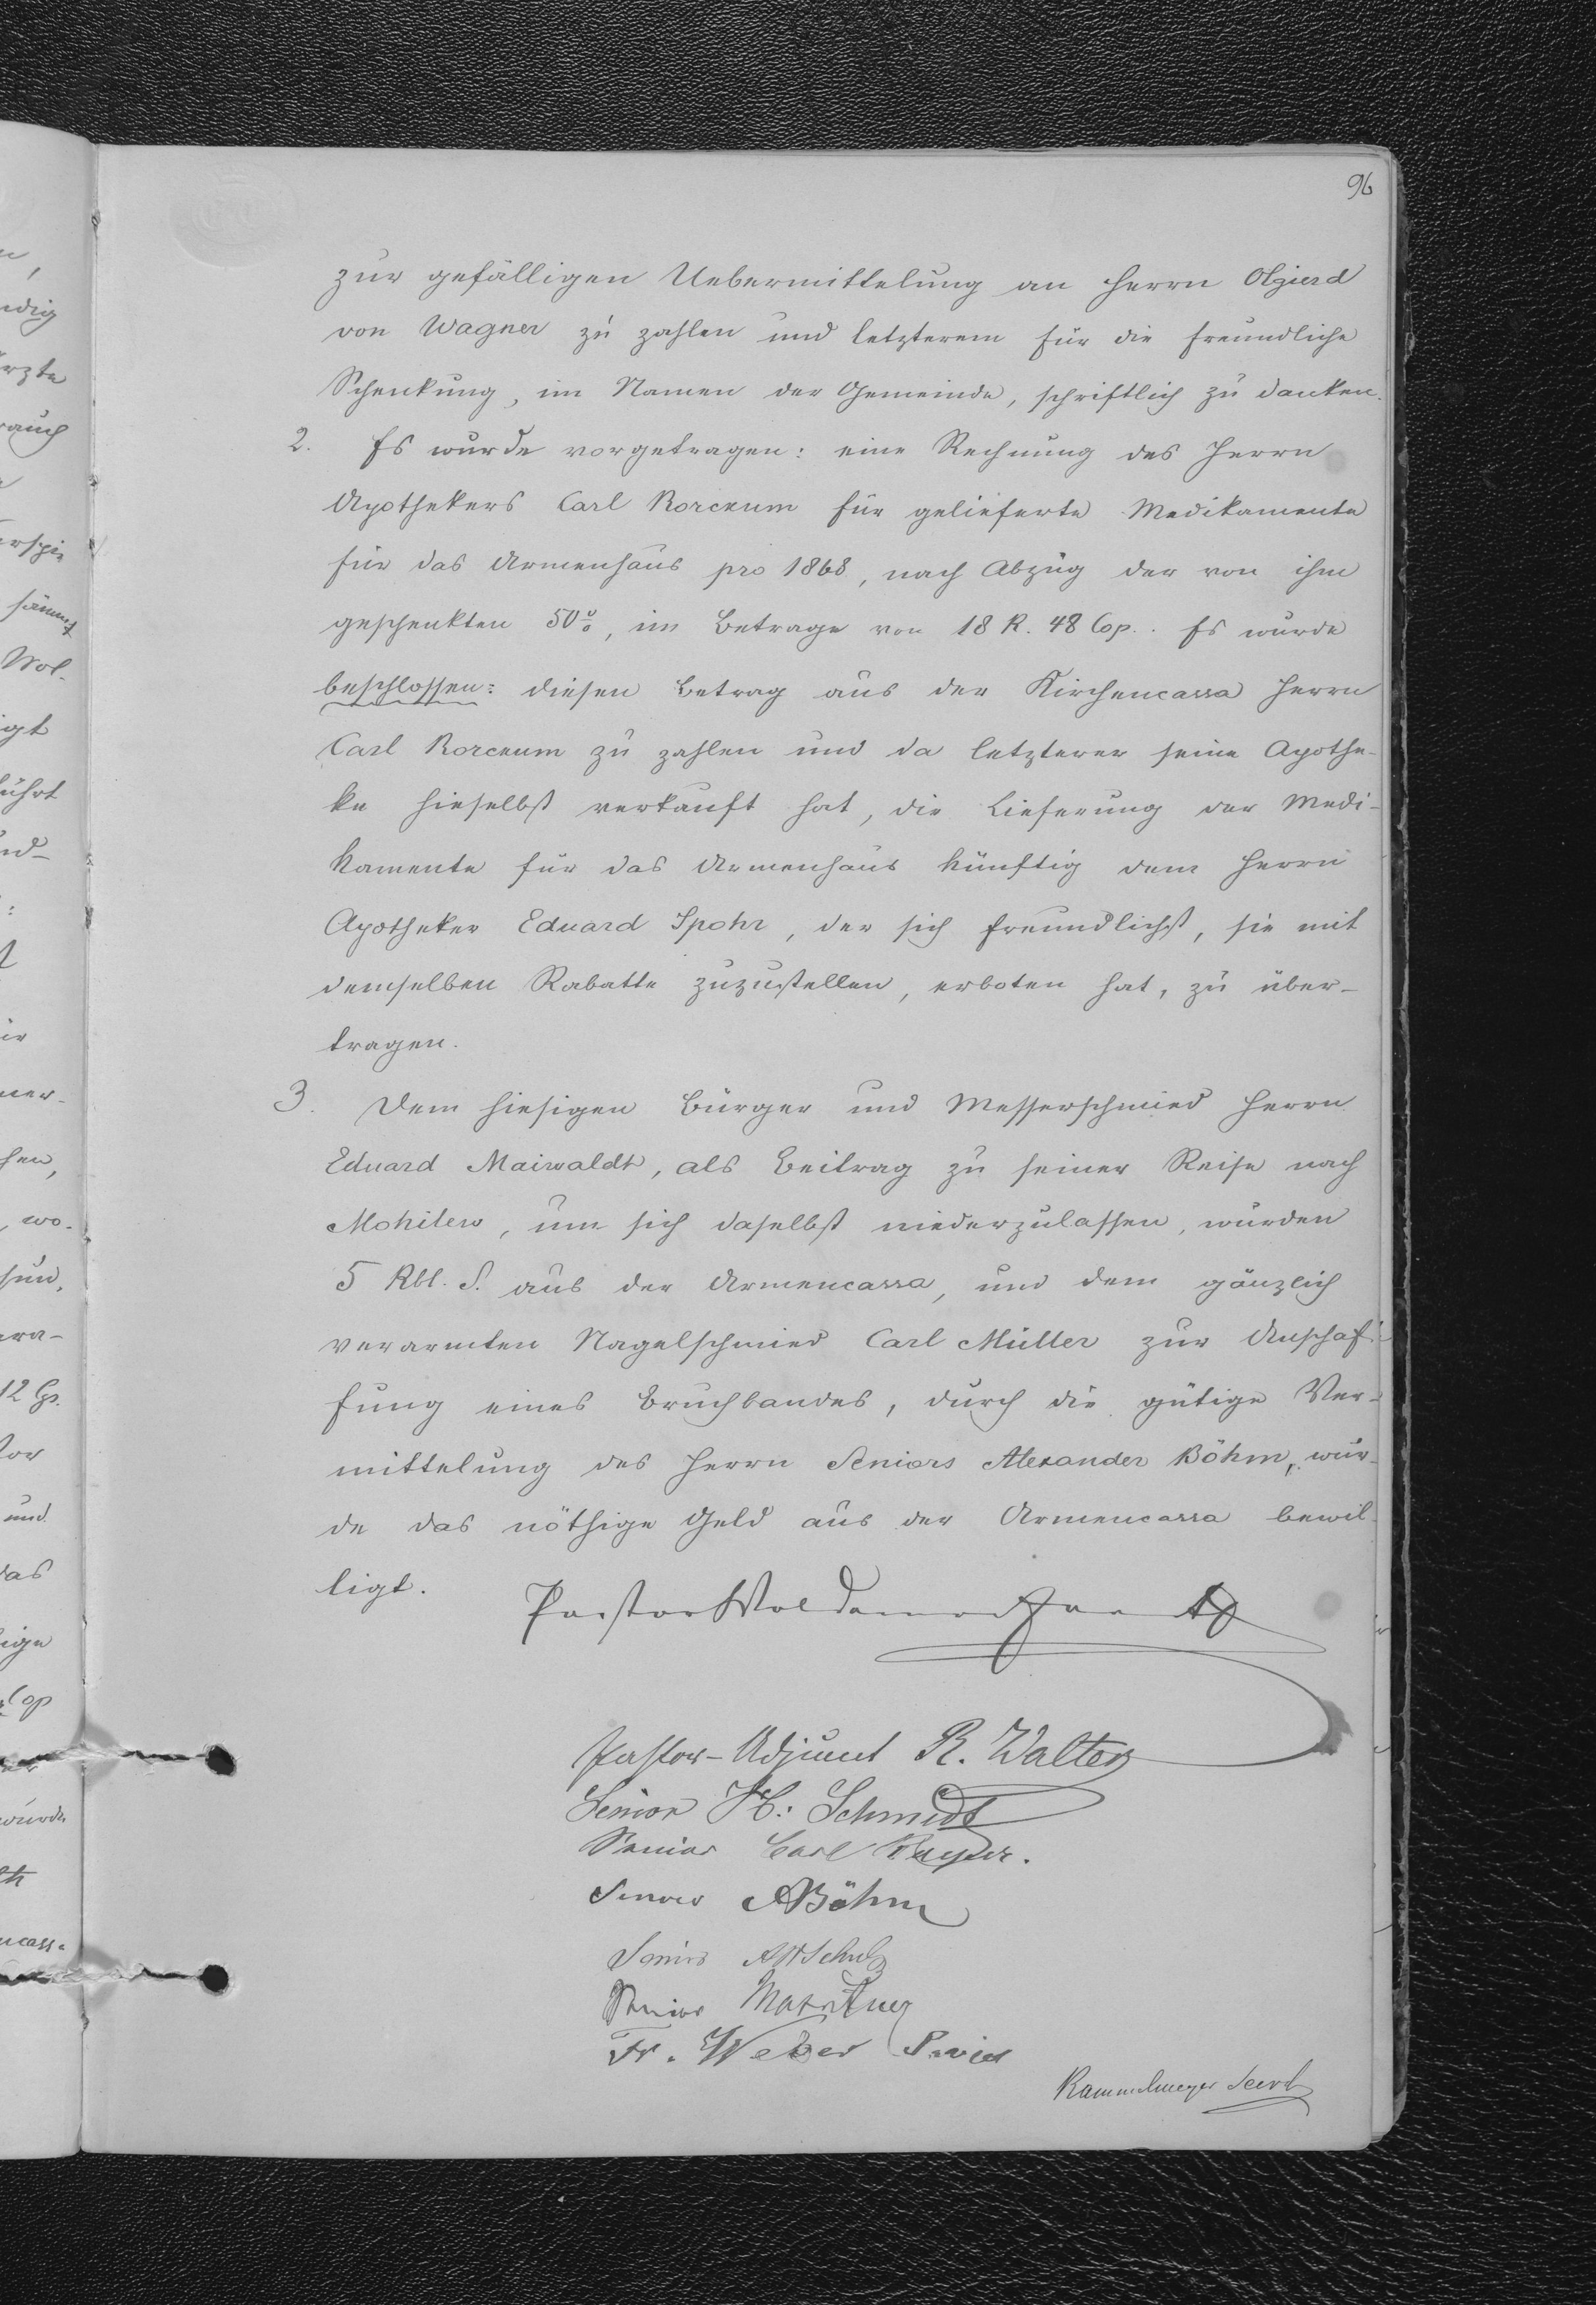 96
zur gefälligen Uebermittelung an Herrn Olgierd
von Wagner zu zahlen und letzterem für die freundliche
Schenkung, im Namen der Gemeinde, schriftlich zu danken.
2. Es wurde vorgetragen: eine Rechnung des Herrn
Apothekers Carl Rorckum für gelieferte Medikamente
für das Armenhaus pro 1868, nach Abzug der von ihm
geschenkten 50%, im Betrage von 18 R. 48 Cop.. Es wurde
beschlossen: diesen Betrag aus der Kirchencassa Herrn
Carl Rorckum zu zahlen und da letzterer seine Apothe-
ke hieselbst verkauft hat, die Lieferung der Medi-
kamente für das Armenhaus künftig dem Herrn
Apotheker Eduard Spohr, der sich freundlichst, sie mit
demselben Rabatte zuzustellen, erboten hat, zu über-
tragen.
3. Dem hiesigen Bürger und Messerschmied Herrn
Eduard Maiwaldt, als Beitrag zu seiner Reise nach
Mohilew, um sich daselbst niederzulassen, wurden
5 Rbl. S. aus der Armencassa, und dem gänzlich
verarmten Nagelschmied Carl Müller zur Anschaf-
fung eines Bruchbandes, durch die gütige Ver-
mittelung des Herrn Seniors Alexander Böhm, wur-
de das nöthige Geld aus der Armencassa bewil-
ligt.
Pastor Woldemar
Pastor-Adjunct R. Walter
Senior H. Schmidt
Senior Carl
Senior ABöhm
Senior Schulz
Senior
Fr. Weber Senior
Kammelmeyer Secrt